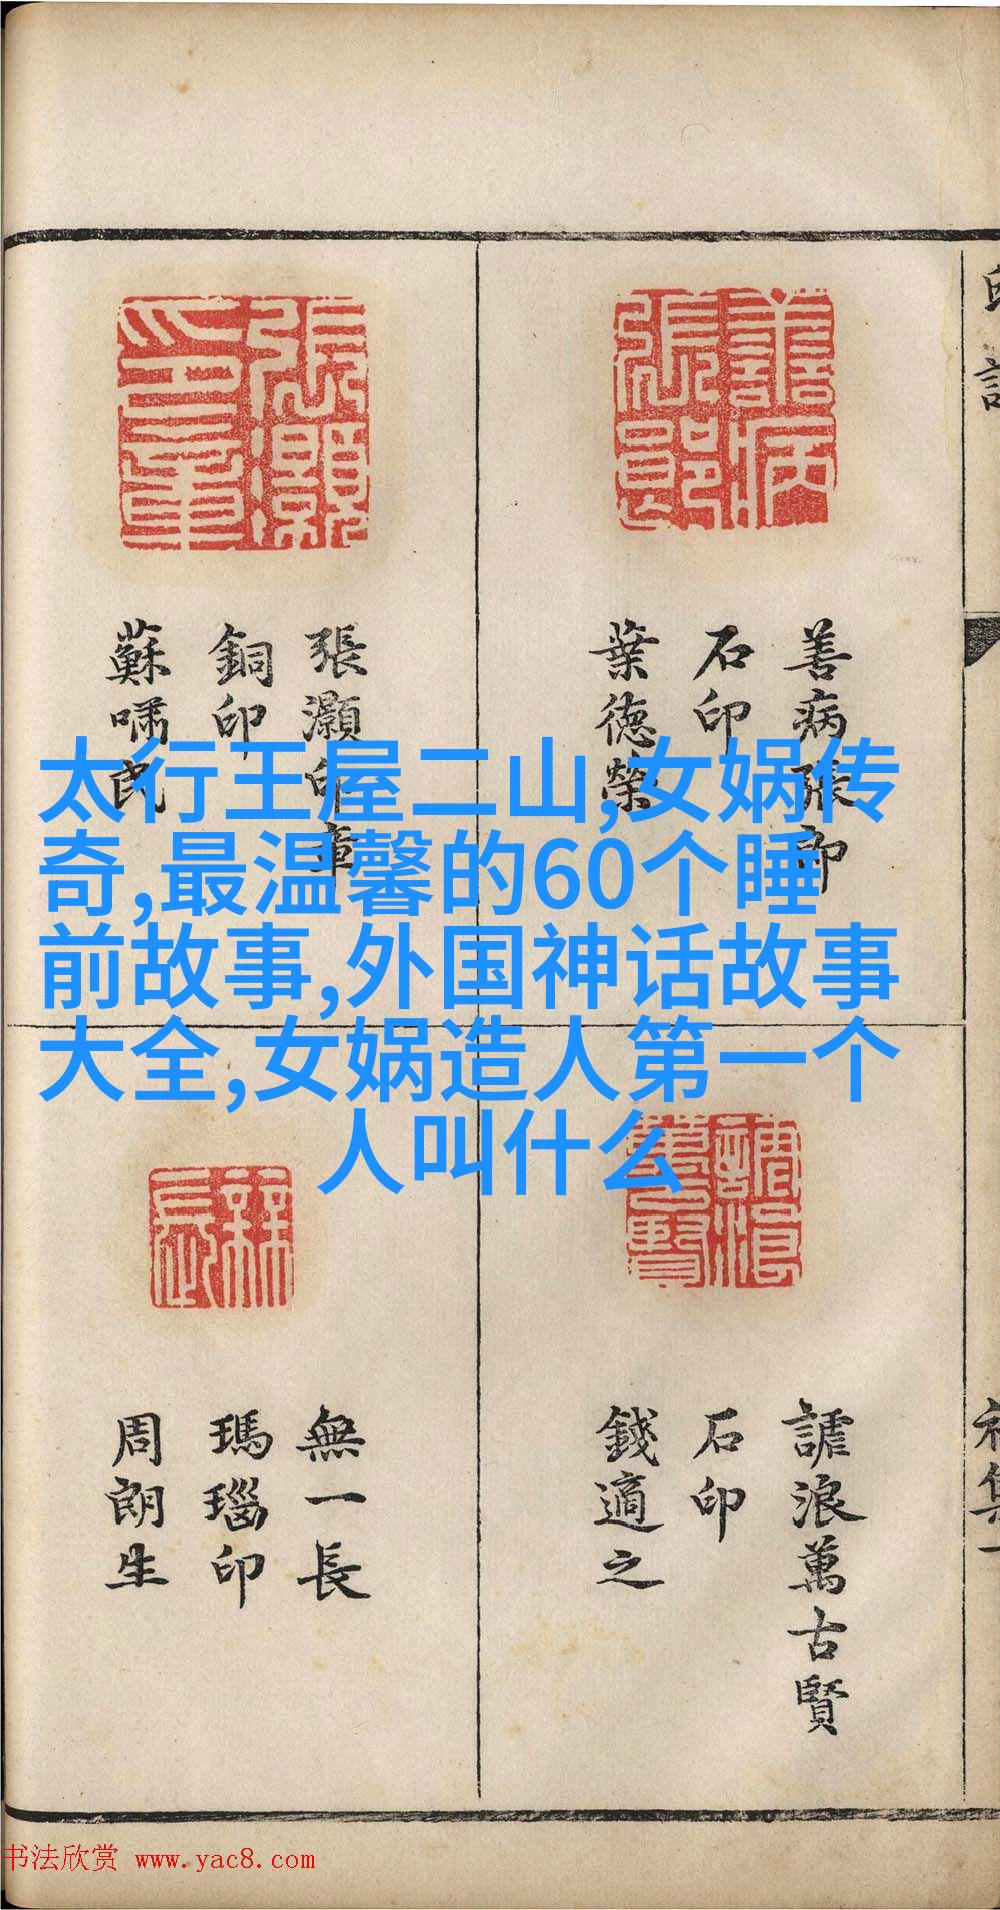 太行王屋二山,女娲传
奇,最温馨的60个睡
前故事,外国神话故事
大全,女娲造人第一个
人叫什么
善病張郎
石印
葉德榮
張灝印章
銅印
蘇嘯民
謔浪萬古賢
石印
錢適之
無一長
瑪瑙印
周朗生
初集一
书法欣赏 www.yac8.com